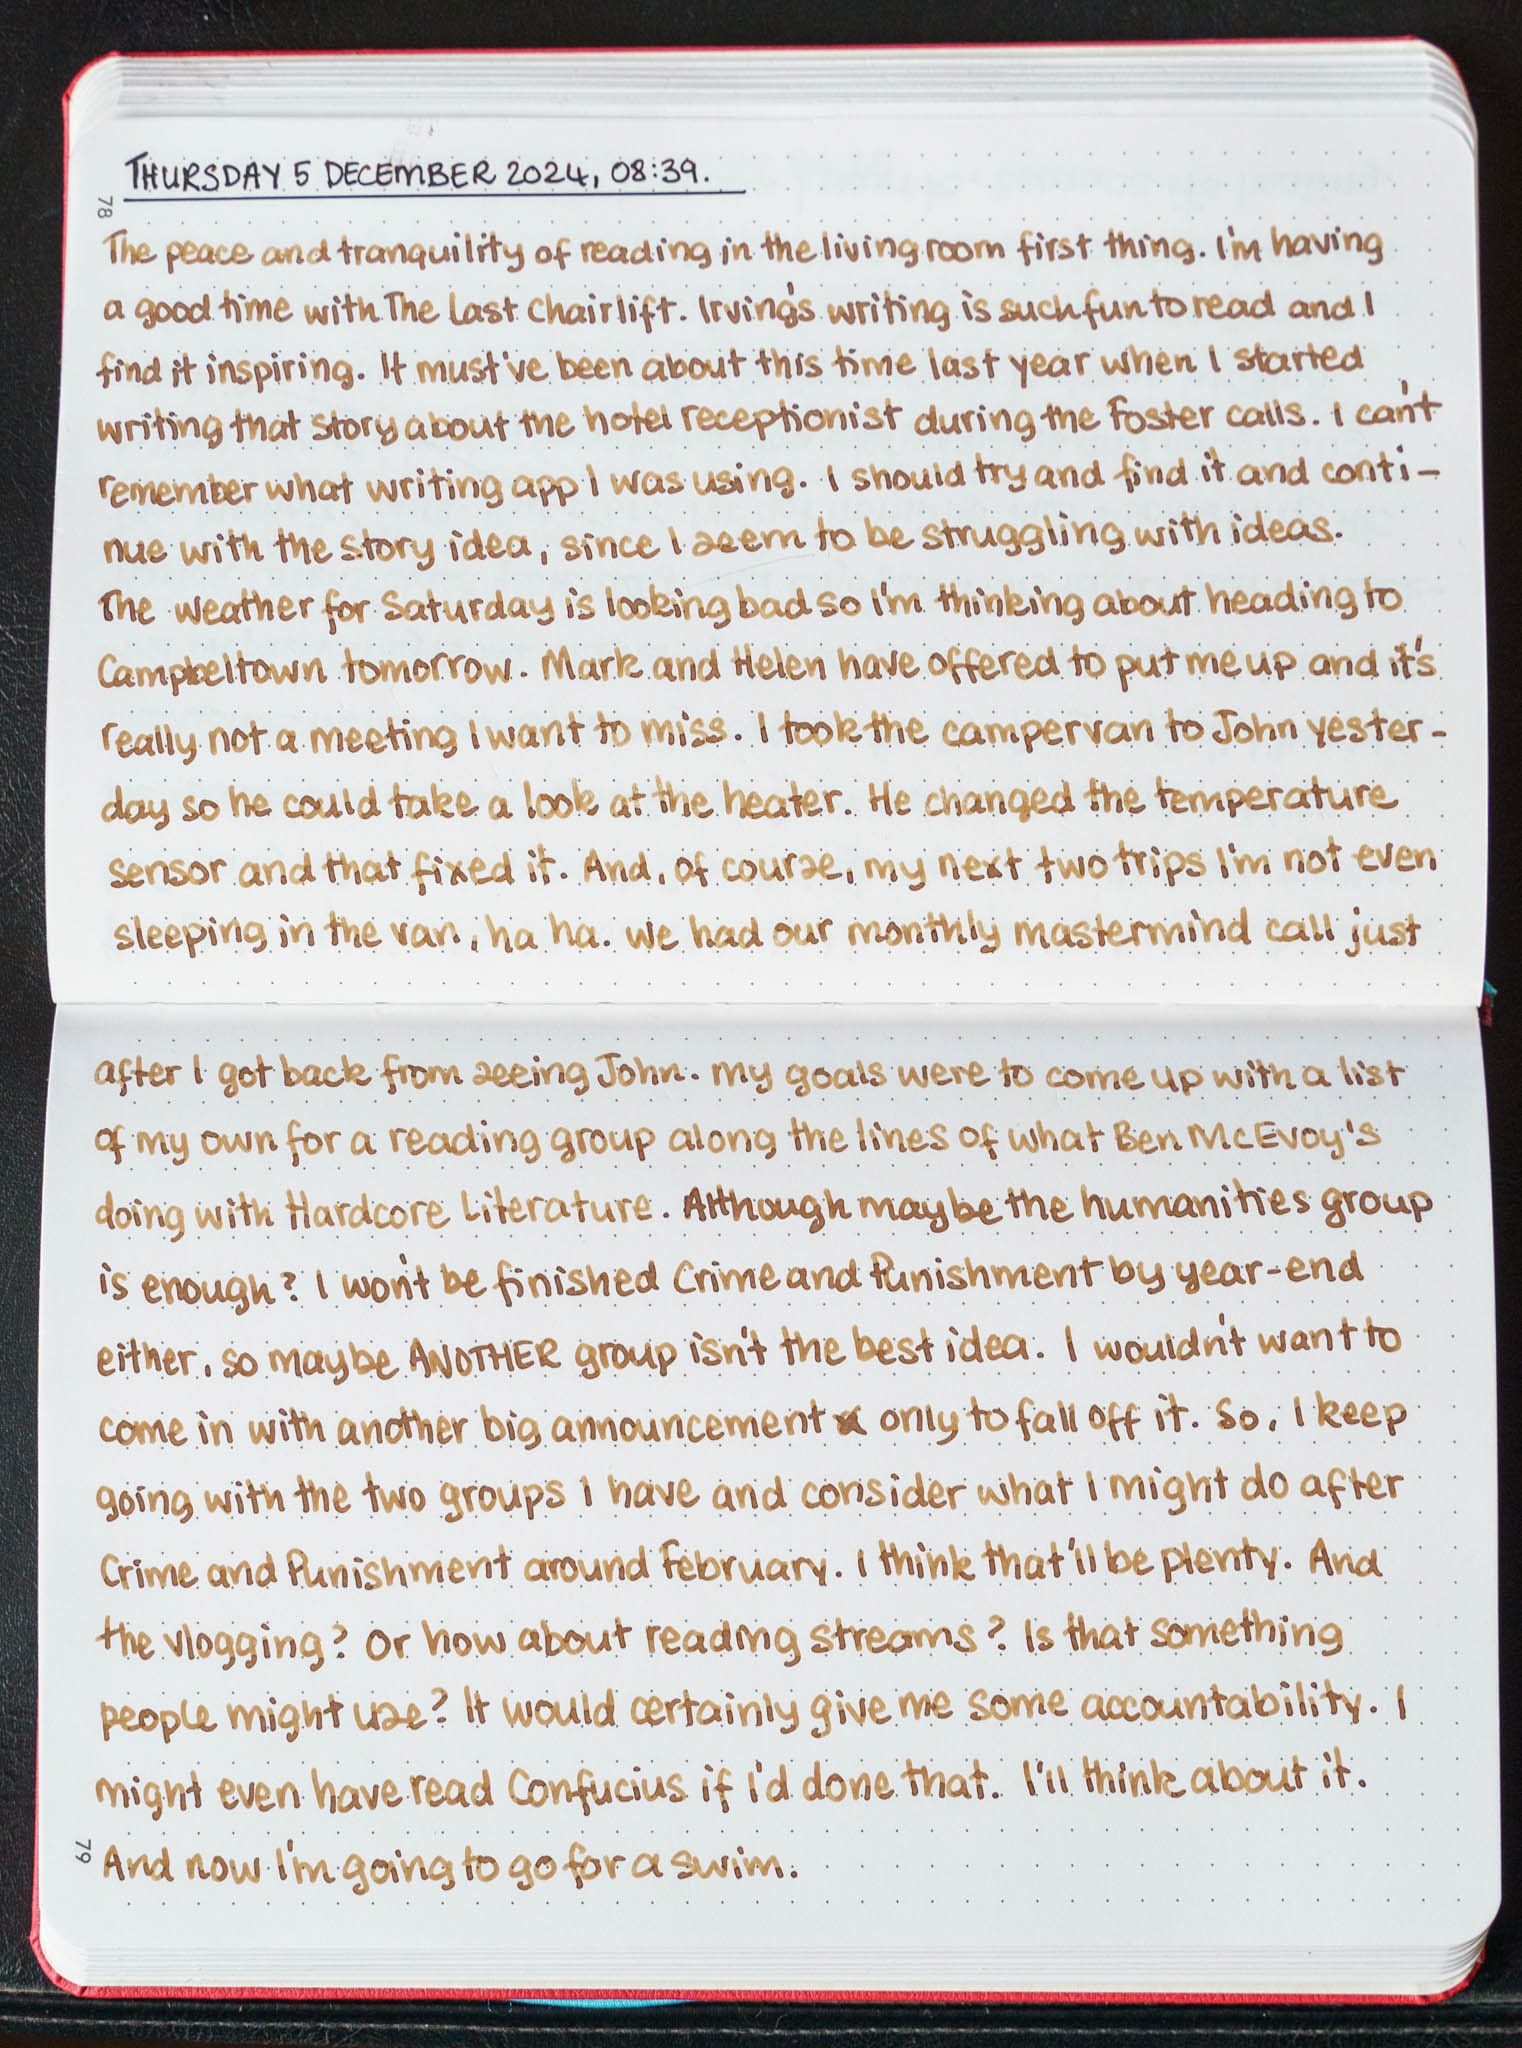 THURSDAY 5 DECEMBER 2024, 08:39.
78
The peace and tranquility of reading in the living room first thing. I'm having
a good time with The Last Chairlift. Irving's writing is such fun to read and I
find it inspiring. It must've been about this time last year when I started
writing that story about the hotel receptionist during the Foster calls. I can't
remember what writing app I was using. I should try and find it and conti-
nue with the story idea, since I seem to be struggling with ideas.
The weather for Saturday is looking bad so I'm thinking about heading to
Campbeltown tomorrow. Mark and Helen have offered to put me up and it's
really not a meeting I want to miss. I took the campervan to John yester-
day so he could take a look at the heater. He changed the temperature
sensor and that fixed it. And, of course, my next two trips I'm not even
sleeping in the van, ha ha. We had our monthly mastermind call just
after I got back from seeing John. My goals were to come up with a list
of my own for a reading group along the lines of what Ben McEvoy's
doing with Hardcore Literature. Although maybe the humanities group
is enough? I won't be finished Crime and Punishment by year-end
either, so maybe ANOTHER group isn't the best idea. I wouldn't want to
come in with another big announcement only to fall off it. So, I keep
going with the two groups I have and consider what I might do after
Crime and Punishment around February. I think that'll be plenty. And
the vlogging? Or how about reading streams? Is that something
people might use? It would certainly give me some accountability. I
might even have read Confucius if I'd done that. I'll think about it.
And now I'm going to go for a swim.
79